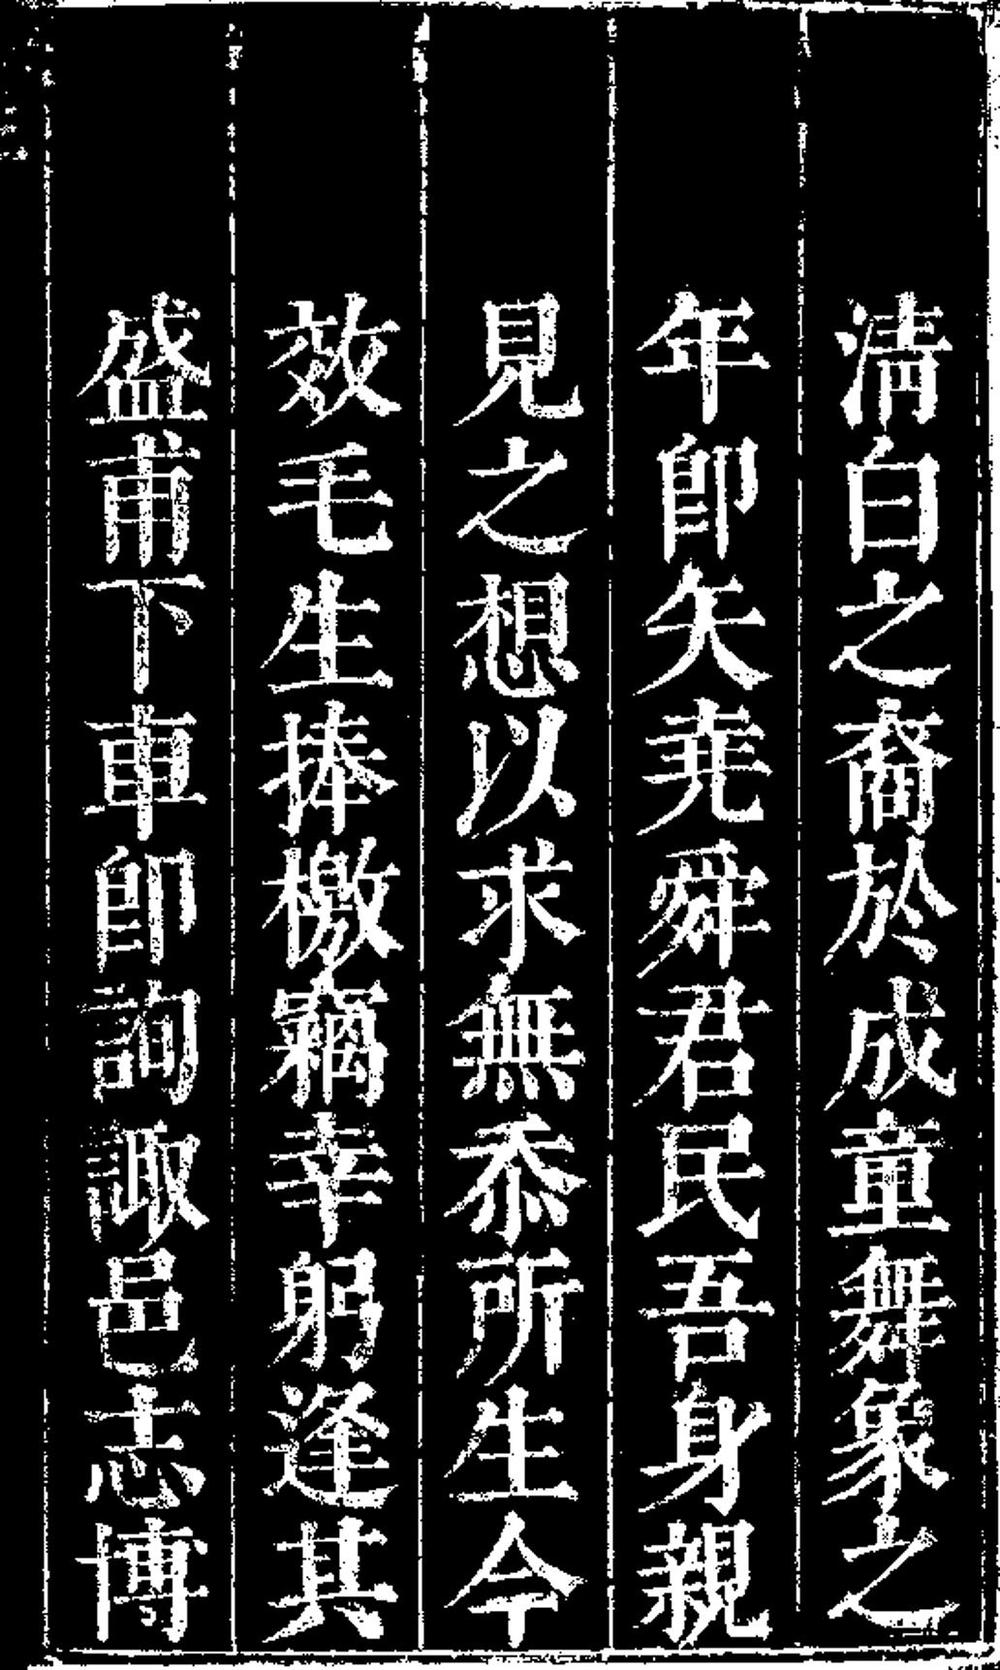 淸白之裔於成童舞象之
年卽矢堯舜君民吾身親
見之想以求無忝所生今
效毛生捧檄竊幸躬逢其
盛甫下車卽詢諏邑志博